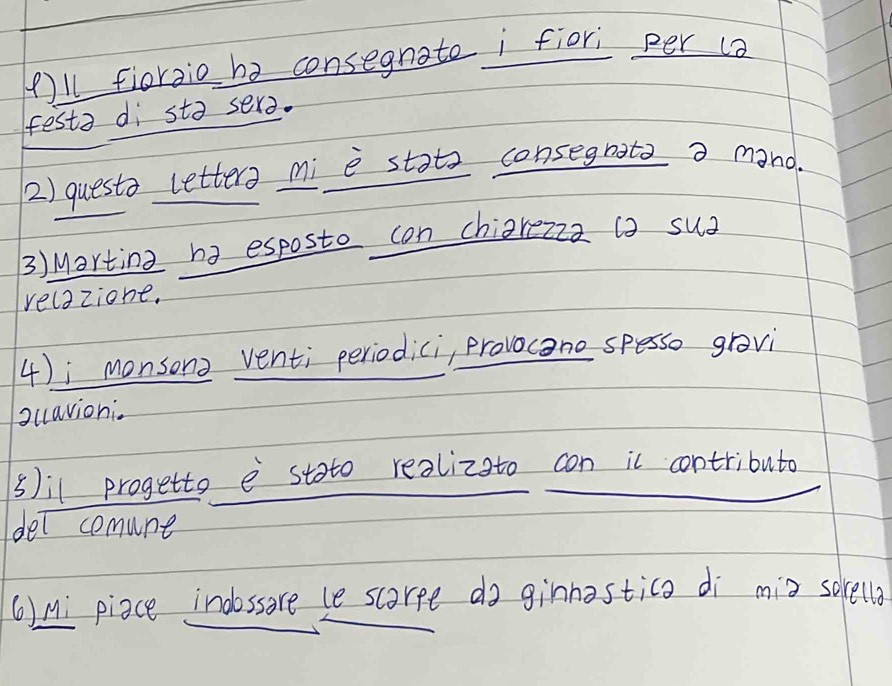 1) Il fioraio ha consegnato i fiori per la
festa di sta sera.
2) questa lettera mi è stata consegnata a mano.
3) Martina ha esposto con chiarezza la sua
relazione.
4) i monsona venti periodici, provocano spesso gravi
alluavioni.
5) il progetto è stato realizato con il contributo
del comune
6) Mi piace indossare le scarpe da ginnastica di mia sorella